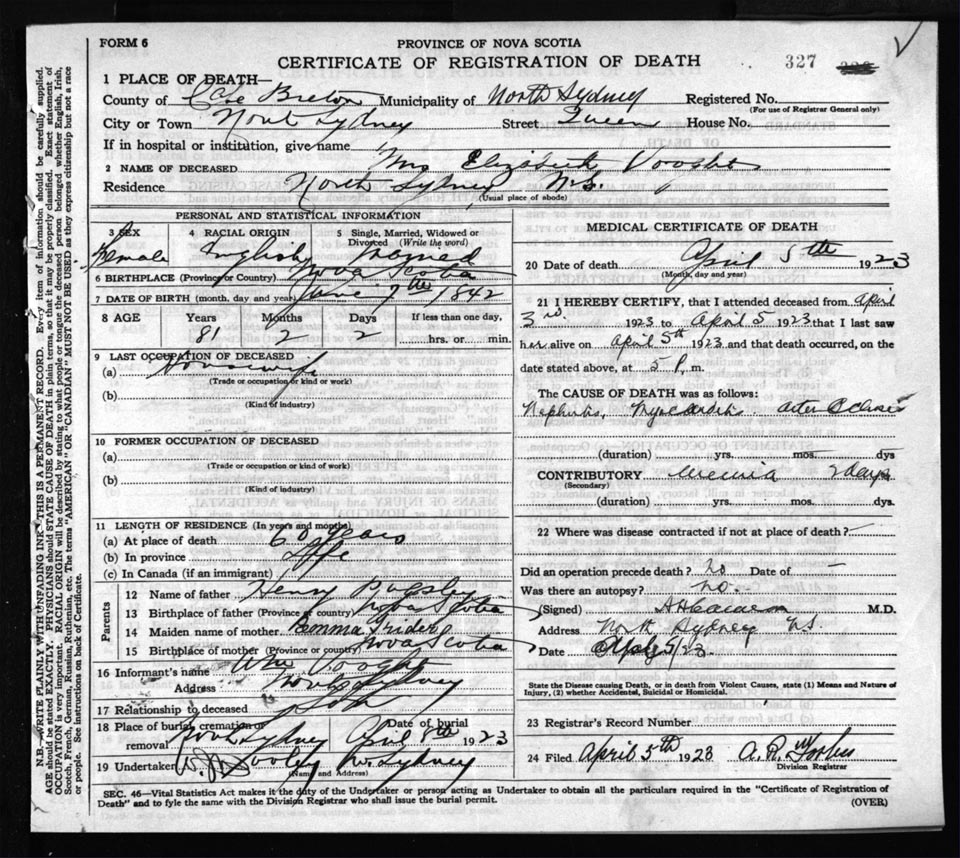 FORM 6
PROVINCE OF NOVA SCOTIA
CERTIFICATE OF REGISTRATION OF DEATH
327
1 PLACE OF DEATH—
County of Cape Breton Municipality of North Sydney Registered No.
(For use of Registrar General only)
City or Town North Sydney Street Queen House No.
If in hospital or institution, give name
2 NAME OF DECEASED Mrs Elizabeth Vooght
Residence North Sydney N.S.
(Usual place of abode)
PERSONAL AND STATISTICAL INFORMATION
3 SEX
Female
4 RACIAL ORIGIN
English
5 Single, Married, Widowed or Divorced (Write the word)
6 BIRTHPLACE (Province or Country) Nova Scotia
7 DATE OF BIRTH (month, day and year) June 7th 1842
8 AGE Years Months Days If less than one day,
81 2 2 hrs. or min.
9 LAST OCCUPATION OF DECEASED
(a) Housewife
(Trade or occupation or kind or work)
(b)
(Kind of industry)
10 FORMER OCCUPATION OF DECEASED
(a)
(Trade or occupation or kind of work)
(b)
(Kind of industry)
11 LENGTH OF RESIDENCE (In years and months)
(a) At place of death 60 years
(b) In province Life
(c) In Canada (if an immigrant)
Parents
12 Name of father Henry Pugsley
13 Birthplace of father (Province or country) Nova Scotia
14 Maiden name of mother
15 Birthplace of mother (Province or country) Nova Scotia
16 Informant's name Wm Vooght
Address North Sydney
17 Relationship to deceased Son
18 Place of burial, cremation or removal North Sydney Date of burial April 8th 1923
19 Undertaker W. J. Dooley N. Sydney
(Name and Address)
MEDICAL CERTIFICATE OF DEATH
20 Date of death April 5th 1923
(Month, day and year)
21 I HEREBY CERTIFY, that I attended deceased from April
3rd 1923 to April 5 1923 that I last saw
her alive on April 5th 1923 and that death occurred, on the
date stated above, at 5 P. m.
The CAUSE OF DEATH was as follows:
Nephritis, Myocarditis
(duration) yrs. mos. dys
CONTRIBUTORY uremia 2 days
(Secondary)
(duration) yrs. mos. dys.
22 Where was disease contracted if not at place of death?
Did an operation precede death? no Date of —
Was there an autopsy? no.
(Signed) M.D.
Address North Sydney N.S.
Date April 5/23
State the Disease causing Death, or in death from Violent Causes, state (1) Means and Nature of
Injury, (2) whether Accidental, Suicidal or Homicidal.
23 Registrar's Record Number
24 Filed April 5th 1923 A. R. Forbes
Division Registrar
SEC. 46—Vital Statistics Act makes it the duty of the Undertaker or person acting as Undertaker to obtain all the particulars required in the "Certificate of Registration of
Death" and to fyle the same with the Division Registrar who shall issue the burial permit.
(OVER)
N.B.—WRITE PLAINLY WITH UNFADING INK—THIS IS A PERMANENT RECORD. Every item of information should be carefully supplied.
AGE should be stated EXACTLY. PHYSICIANS should STATE CAUSE OF DEATH in plain terms, so that it may be properly classified. Exact statement of
OCCUPATION is very important. RACIAL ORIGIN will be described by stating to what people or tongue the deceased person belonged, whether English, Irish,
Scotch, French, German, Russian, Ruthenian, etc. The terms "AMERICAN" OR "CANADIAN" MUST NOT BE USED as they express citizenship but not a race
or people. See instructions on back of Certificate.